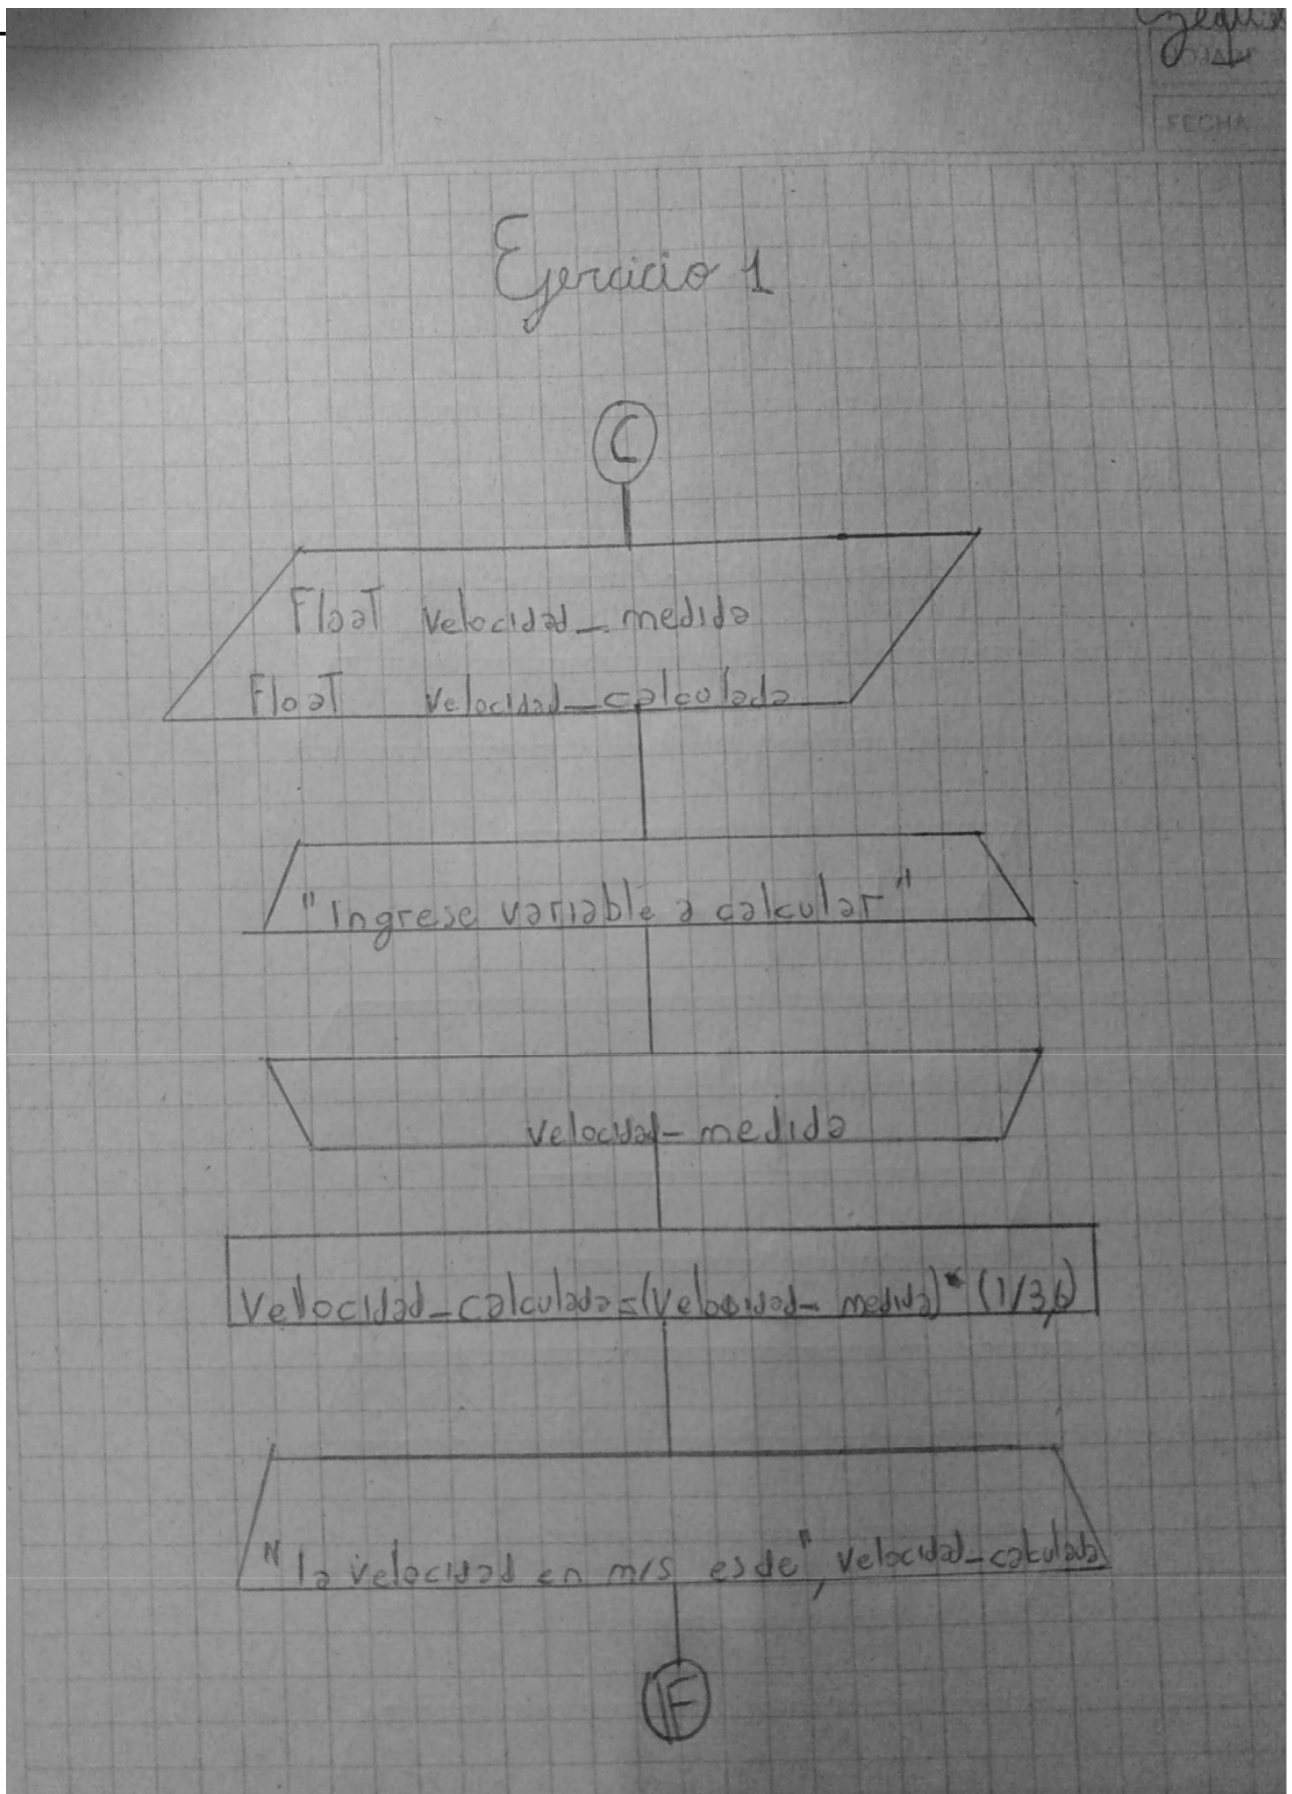 FECHA
Ejercicio 1
C
Float velocidad_medida
Float velocidad_calculada
"Ingrese variable a calcular"
velocidad_medida
Velocidad_calculada=(Velocidad_medida)*(1/3,6)
"la velocidad en m/s es de", velocidad_calculada
F